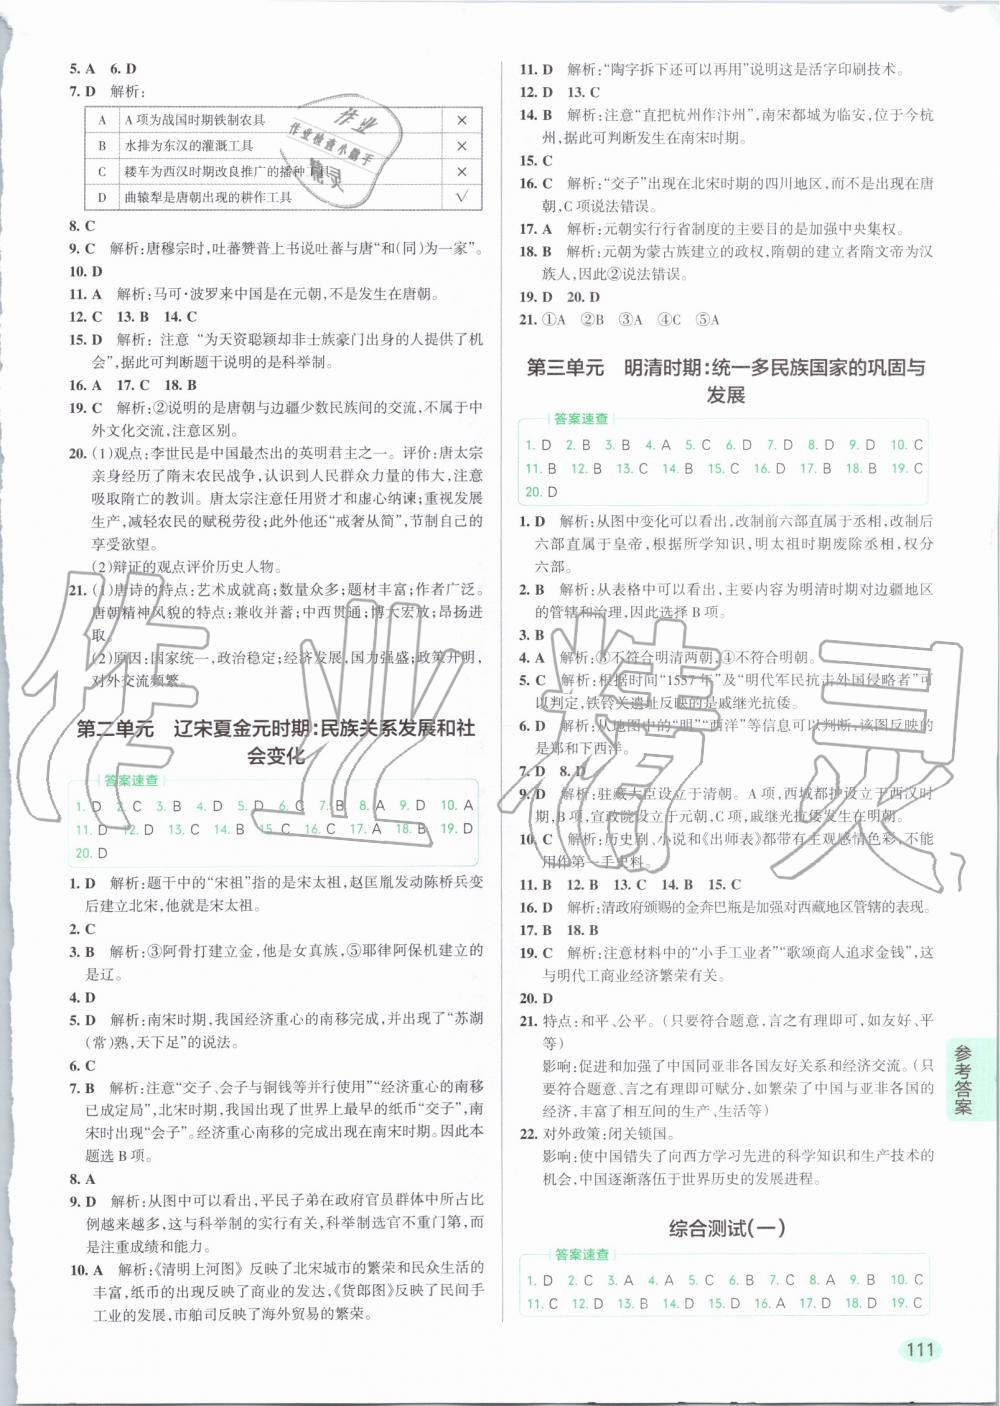 5. A 6. D
7. D 解析:
A A项为战国时期铁制农具 ×
B 水排为东汉的灌溉工具 ×
C 耧车为西汉时期改良推广的播种工具 ×
D 曲辕犁是唐朝出现的耕作工具 √
8. C
9. C 解析:唐穆宗时,吐蕃赞普上书说吐蕃与唐“和(同)为一家”。
10. D
11. A 解析:马可·波罗来中国是在元朝,不是发生在唐朝。
12. C 13. B 14. C
15. D 解析:注意“为天资聪颖却非士族豪门出身的人提供了机
会”,据此可判断题干说明的是科举制。
16. A 17. C 18. B
19. C 解析:②说明的是唐朝与边疆少数民族间的交流,不属于中
外文化交流,注意区别。
20. (1)观点:李世民是中国最杰出的英明君主之一。评价:唐太宗
亲身经历了隋末农民战争,认识到人民群众力量的伟大,注意
吸取隋亡的教训。唐太宗注意任用贤才和虚心纳谏;重视发展
生产,减轻农民的赋税劳役;此外他还“戒奢从简”,节制自己的
享受欲望。
(2)辩证的观点评价历史人物。
21. (1)唐诗的特点:艺术成就高;数量众多;题材丰富;作者广泛。
唐朝精神风貌的特点:兼收并蓄;中西贯通;博大宏放;昂扬进
取。
(2)原因:国家统一,政治稳定;经济发展,国力强盛;政策开明,
对外交流频繁。
第二单元 辽宋夏金元时期:民族关系发展和社
会变化
答案速查
1. D 2. C 3. B 4. D 5. D 6. C 7. B 8. A 9. D 10. A
11. D 12. D 13. C 14. B 15. C 16. C 17. A 18. B 19. D
20. D
1. D 解析:题干中的“宋祖”指的是宋太祖,赵匡胤发动陈桥兵变
后建立北宋,他就是宋太祖。
2. C
3. B 解析:③阿骨打建立金,他是女真族,⑤耶律阿保机建立的
是辽。
4. D
5. D 解析:南宋时期,我国经济重心的南移完成,并出现了“苏湖
(常)熟,天下足”的说法。
6. C
7. B 解析:注意“交子、会子与铜钱等并行使用”“经济重心的南移
已成定局”,北宋时期,我国出现了世界上最早的纸币“交子”,南
宋时出现“会子”。经济重心南移的完成出现在南宋时期。因此本
题选B项。
8. A
9. D 解析:从图中可以看出,平民子弟在政府官员群体中所占比
例越来越多,这与科举制的实行有关,科举制选官不重门第,而
是注重成绩和能力。
10. A 解析:《清明上河图》反映了北宋城市的繁荣和民众生活的
丰富,纸币的出现反映了商业的发达,《货郎图》反映了民间手
工业的发展,市舶司反映了海外贸易的繁荣。
11. D 解析:“陶字拆下还可以再用”说明这是活字印刷技术。
12. D 13. C
14. B 解析:注意“直把杭州作汴州”,南宋都城为临安,位于今杭
州,据此可判断发生在南宋时期。
15. C
16. C 解析:“交子”出现在北宋时期的四川地区,而不是出现在唐
朝,C项说法错误。
17. A 解析:元朝实行行省制度的主要目的是加强中央集权。
18. B 解析:元朝为蒙古族建立的政权,隋朝的建立者隋文帝为汉
族人,因此②说法错误。
19. D 20. D
21. ①A ②B ③A ④C ⑤A
第三单元 明清时期:统一多民族国家的巩固与
发展
答案速查
1. D 2. B 3. B 4. A 5. C 6. D 7. D 8. D 9. D 10. C
11. B 12. B 13. C 14. B 15. C 16. D 17. B 18. B 19. C
20. D
1. D 解析:从图中变化可以看出,改制前六部直属于丞相,改制后
六部直属于皇帝,根据所学知识,明太祖时期废除丞相,权分
六部。
2. B 解析:从表格中可以看出,主要内容为明清时期对边疆地区
的管辖和治理,因此选择B项。
3. B
4. A 解析:③不符合明清两朝,④不符合明朝。
5. C 解析:根据时间“1557年”及“明代军民抗击外国侵略者”可
以判定,铁铃关遗址反映的是戚继光抗倭。
6. D 解析:从地图中的“明”“西洋”等信息可以判断,该图反映的
是郑和下西洋。
7. D 8. D
9. D 解析:驻藏大臣设立于清朝。A项,西域都护设立于西汉时
期,B项,宣政院设立于元朝,C项,戚继光抗倭发生在明朝。
10. C 解析:历史剧、小说和《出师表》都带有主观感情色彩,不能
用作第一手史料。
11. B 12. B 13. C 14. B 15. C
16. D 解析:清政府颁赐的金奔巴瓶是加强对西藏地区管辖的表现。
17. B 18. B
19. C 解析:注意材料中的“小手工业者”“歌颂商人追求金钱”,这
与明代工商业经济繁荣有关。
20. D
21. 特点:和平、公平。(只要符合题意,言之有理即可,如友好、平
等)
影响:促进和加强了中国同亚非各国友好关系和经济交流。(只
要符合题意、言之有理即可赋分,如繁荣了中国与亚非各国的
经济,丰富了相互间的生产、生活等)
22. 对外政策:闭关锁国。
影响:使中国错失了向西方学习先进的科学知识和生产技术的
机会,中国逐渐落伍于世界历史的发展进程。
综合测试(一)
答案速查
1. D 2. C 3. A 4. A 5. D 6. A 7. D 8. D 9. A 10. C
11. C 12. D 13. D 14. D 15. C 16. A 17. D 18. D 19. C
参考答案
111
作业
作业检查小助手
精灵
作业精灵